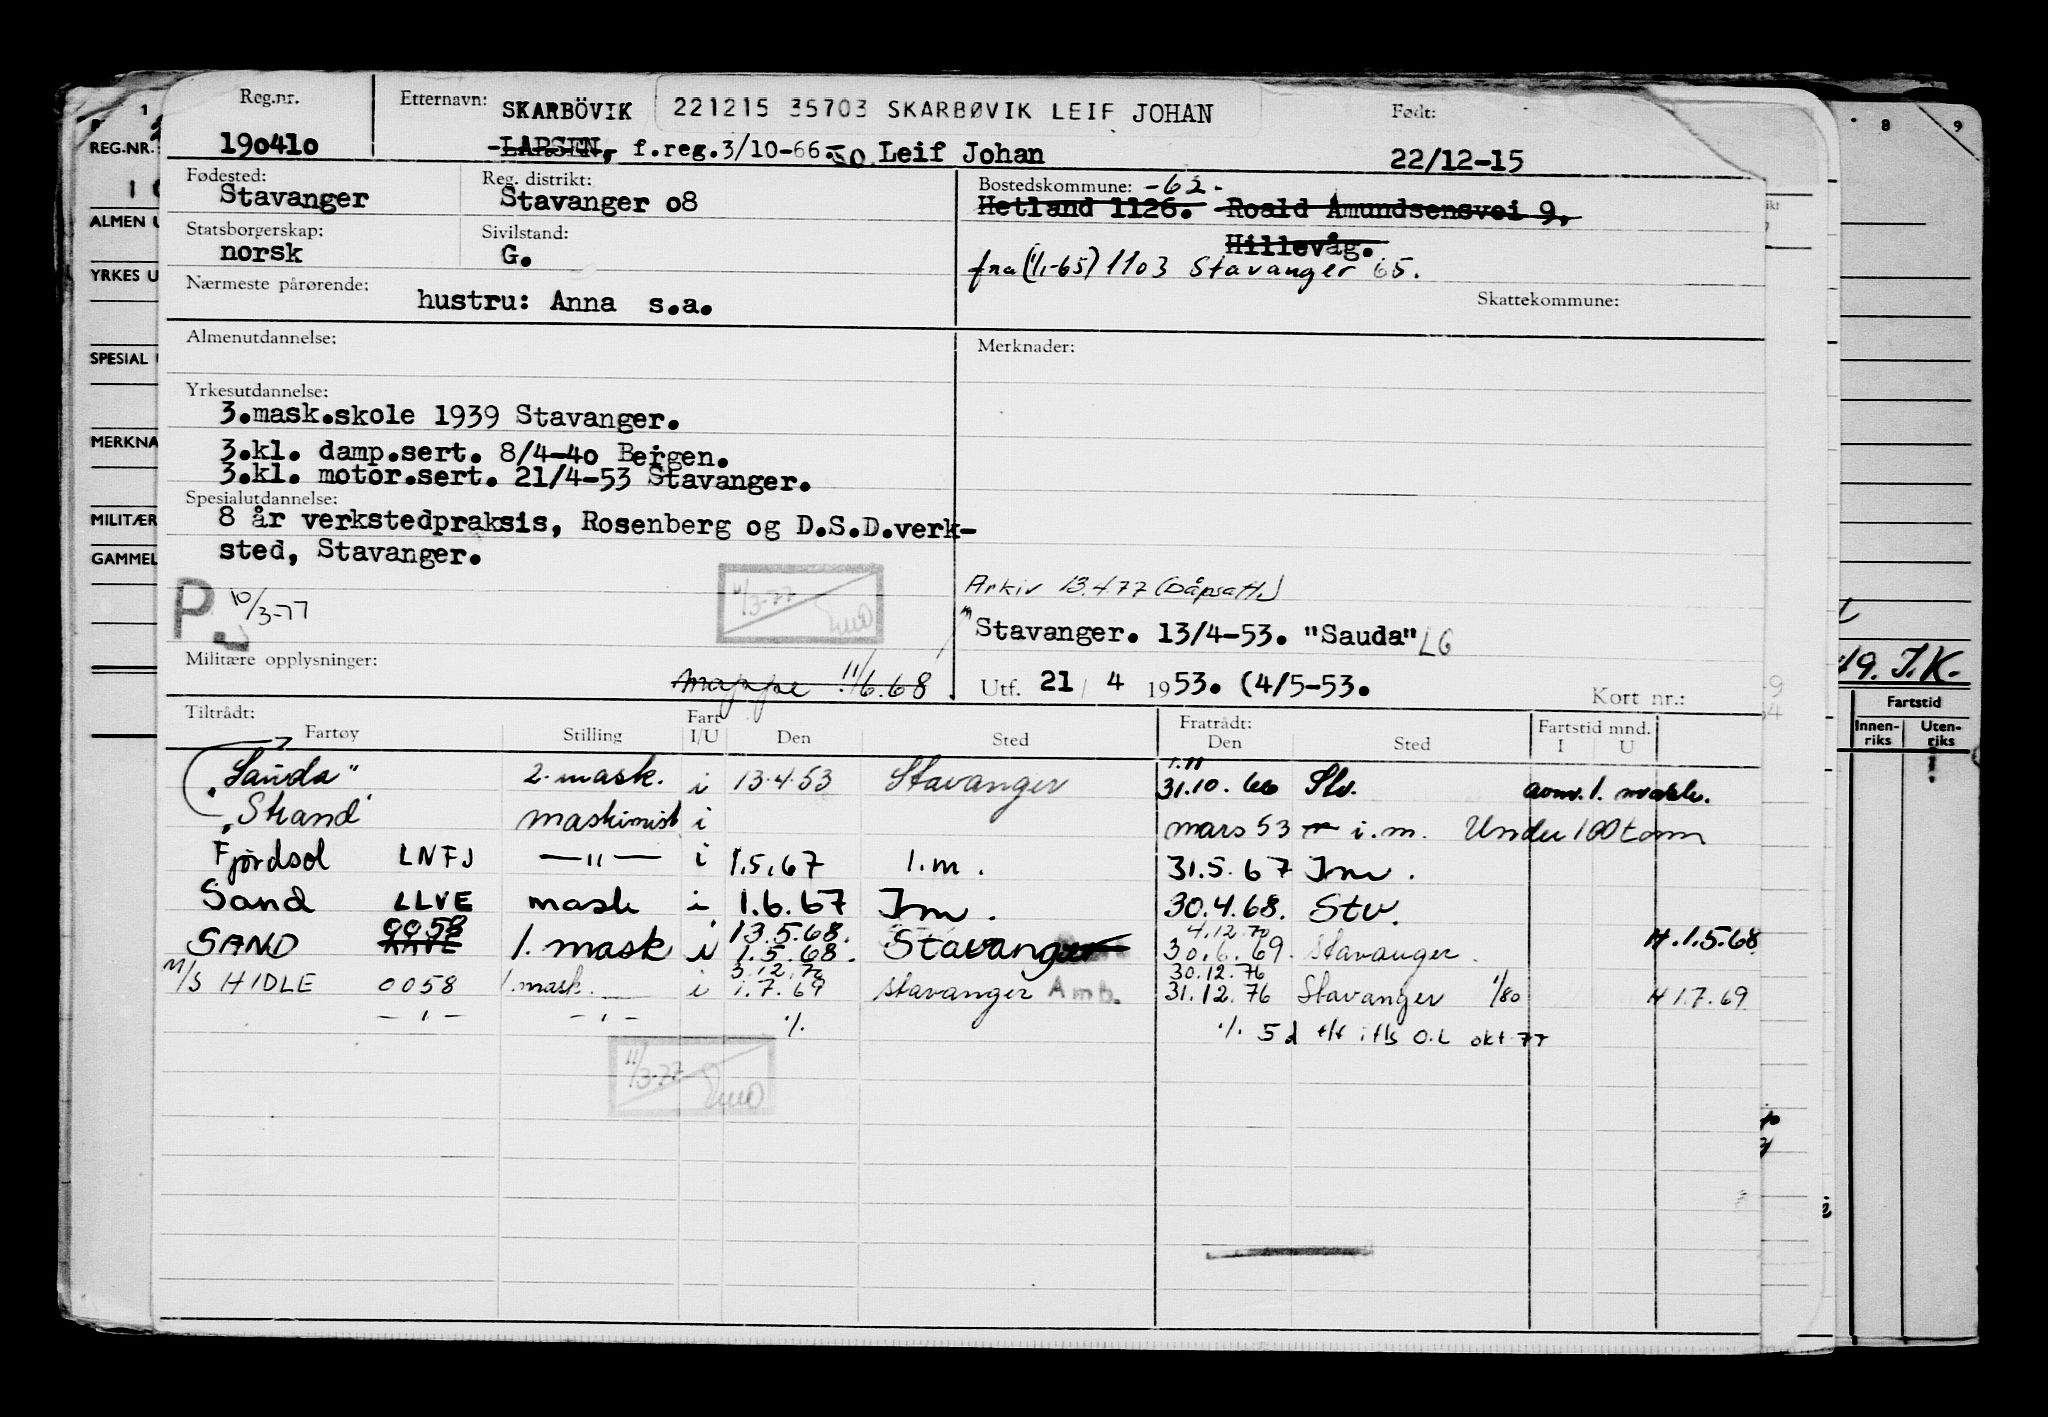 Reg.nr. Etternavn: SKARBÖVIK 221215 35703 SKARBØVIK LEIF JOHAN Født:
190410 LARSEN, f.reg.3/10-66. Leif Johan 22/12-15
Fødested: Reg. distrikt: Bostedskommune: -62-
Stavanger Stavanger o8 Hetland 1126. Roald Amundsensvei 9,
Statsborgerskap: Sivilstand: Hillevåg.
norsk G. fra (1/1-65) 1103 Stavanger 65.
Nærmeste pårørende: Skattekommune:
hustru: Anna s.a.
Almenutdannelse: Merknader:
Yrkesutdannelse:
3.mask.skole 1939 Stavanger.
3.kl. damp.sert. 8/4-40 Bergen.
3.kl. motor.sert. 21/4-53 Stavanger.
Spesialutdannelse:
8 år verkstedpraksis, Rosenberg og D.S.D.verk-
sted, Stavanger.
P. 10/3-77 11/3-77 Arkiv 13.4.77 (Dåpsatt.)
Stavanger. 13/4-53. "Sauda" LG
Militære opplysninger: mappe 11/6.68
Utf. 21 / 4 1953. (4/5-53. Kort nr.:
Tiltrådt: Fart Fratrådt: Fartstid mnd.
Fartøy Stilling I/U Den Sted Den Sted I U
"Sauda" 2. mask. i 13.4.53 Stavanger 1.11 31.10.66 Stv. 1. mask.
"Strand" maskinist i mars 53 i.m. Under 100 tonn
Fjordsol LNFJ —"— i 1.5.67 I.m. 31.5.67 Im.
Sand LLVE mask i 1.6.67 Im. 30.4.68. Stv.
0058 13.5.68. 4.12.70
SAND 1. mask i 1.5.68. Stavanger 30.6.69. Stavanger. H.1.5.68
3.12.70 30.12.76
M/S HIDLE 0058 1. mask. i 1.7.69 Stavanger Amb. 31.12.76 Stavanger 1/80 H 1.7.69
—"— —"— ./. ./. 5 d okt 77
11/3-77
REG.NR.
ALMEN U
YRKES U
SPESIAL
MERKNA
MILITÆR
GAMMEL
8 9
49. J.K.
Fartstid
Innen- Uten-
riks riks